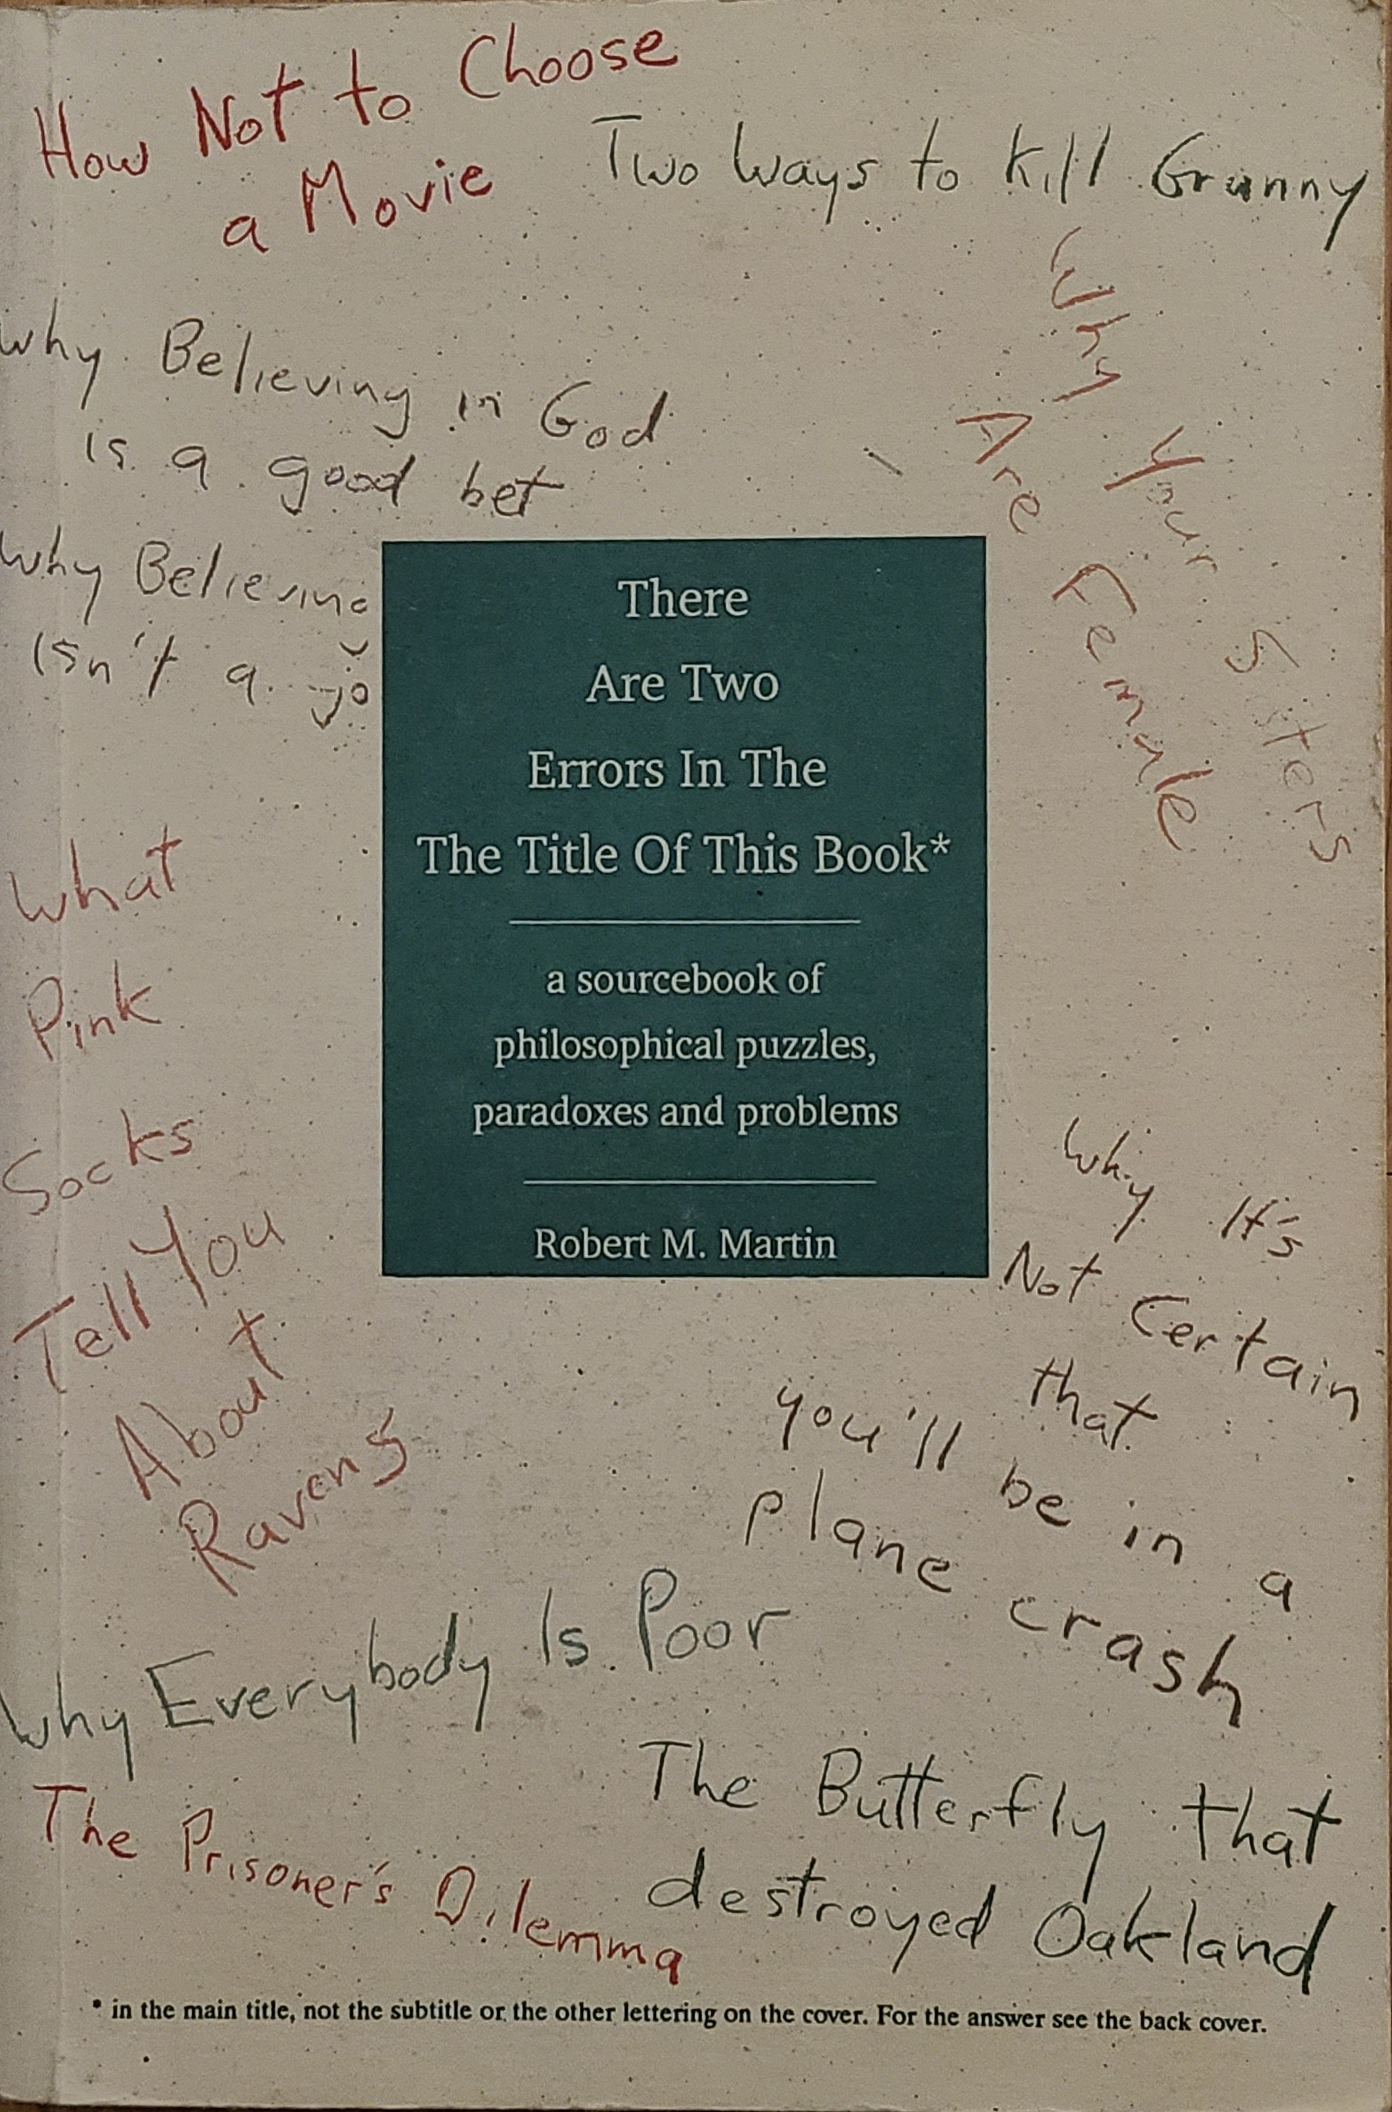 How Not to Choose
a Movie
Two Ways to Kill Granny
Why Believing in God
is a good bet
Why Your Sisters
Are Female
Why Believing
Isn't a
There
Are Two
Errors In The
The Title Of This Book*
a sourcebook of
philosophical puzzles,
paradoxes and problems
Robert M. Martin
What
Pink
Socks
Tell You
About
Ravens
Why It's
Not Certain
that
you'll be in a
plane crash
Why Everybody Is Poor
The Butterfly that
destroyed Oakland
The Prisoner's Dilemma
* in the main title, not the subtitle or the other lettering on the cover. For the answer see the back cover.